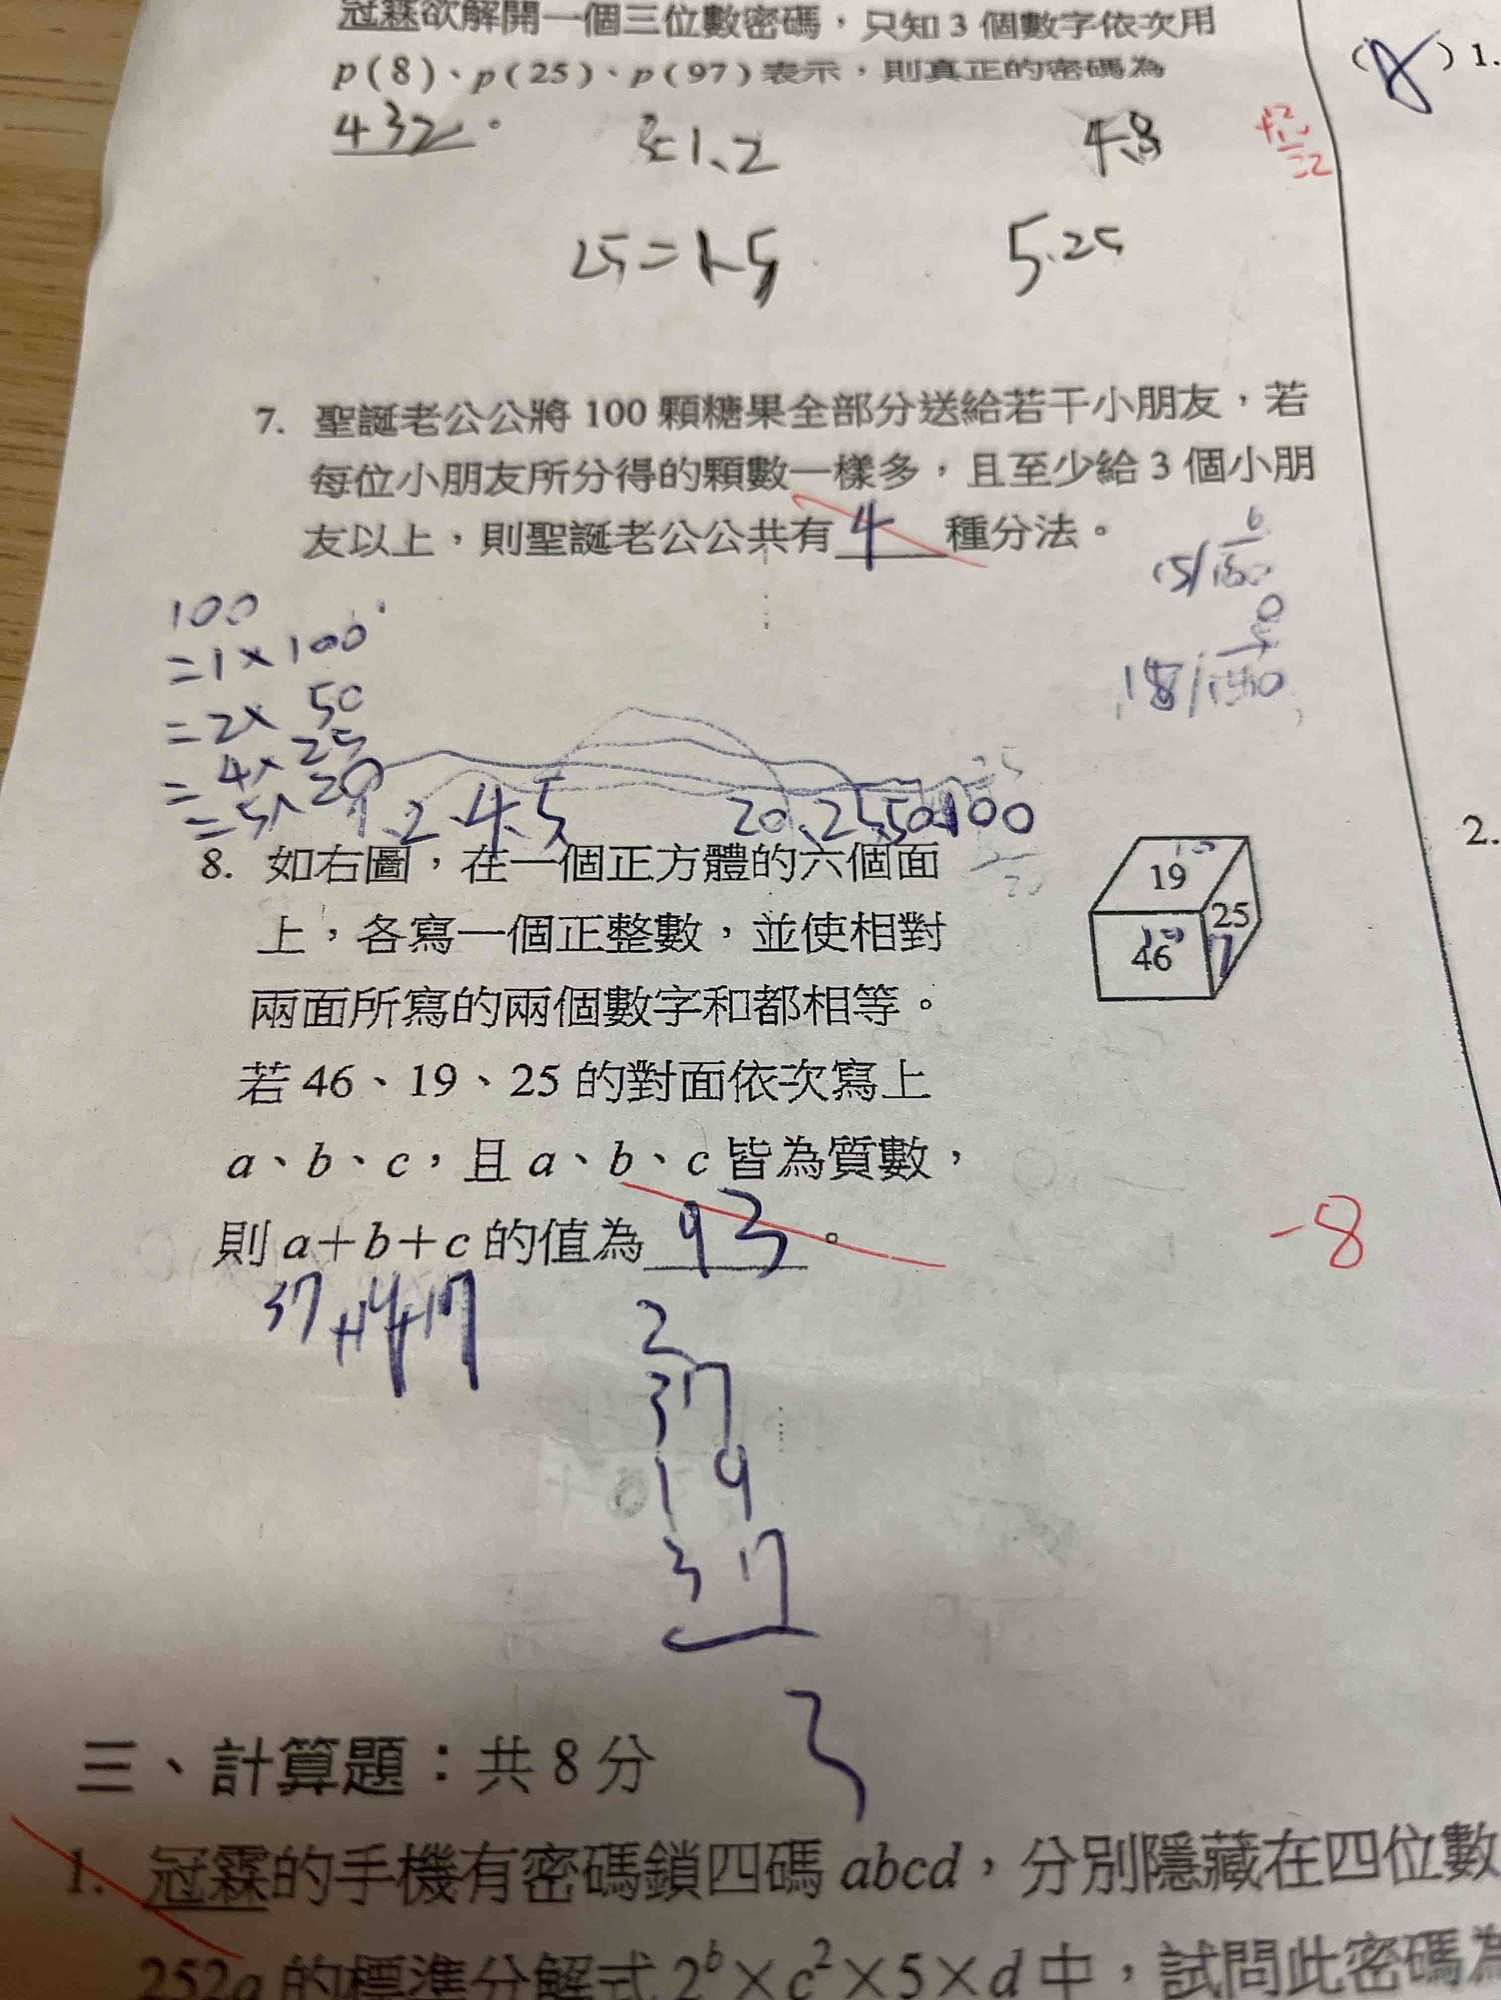 冠霖欲解開一個三位數密碼，只知 3 個數字依次用
p(8)、p(25)、p(97) 表示，則真正的密碼為
432。
1、2
4.8
25=1、5
5.25
(8) 1.
7. 聖誕老公公將 100 顆糖果全部分送給若干小朋友，若
每位小朋友所分得的顆數一樣多，且至少給 3 個小朋
友以上，則聖誕老公公共有 4 種分法。
100
=1×100
=2×50
=4×25
=5×20
1、2、4、5、20、25、50、100
8. 如右圖，在一個正方體的六個面
上，各寫一個正整數，並使相對
兩面所寫的兩個數字和都相等。
若 46、19、25 的對面依次寫上
a、b、c，且 a、b、c 皆為質數，
則 a＋b＋c 的值為 93。
19
25
46
2.
-8
2
37
19
37
三、計算題：共 8 分
1. 冠霖的手機有密碼鎖四碼 abcd，分別隱藏在四位數
252a 的標準分解式 2^b×c^2×5×d 中，試問此密碼為